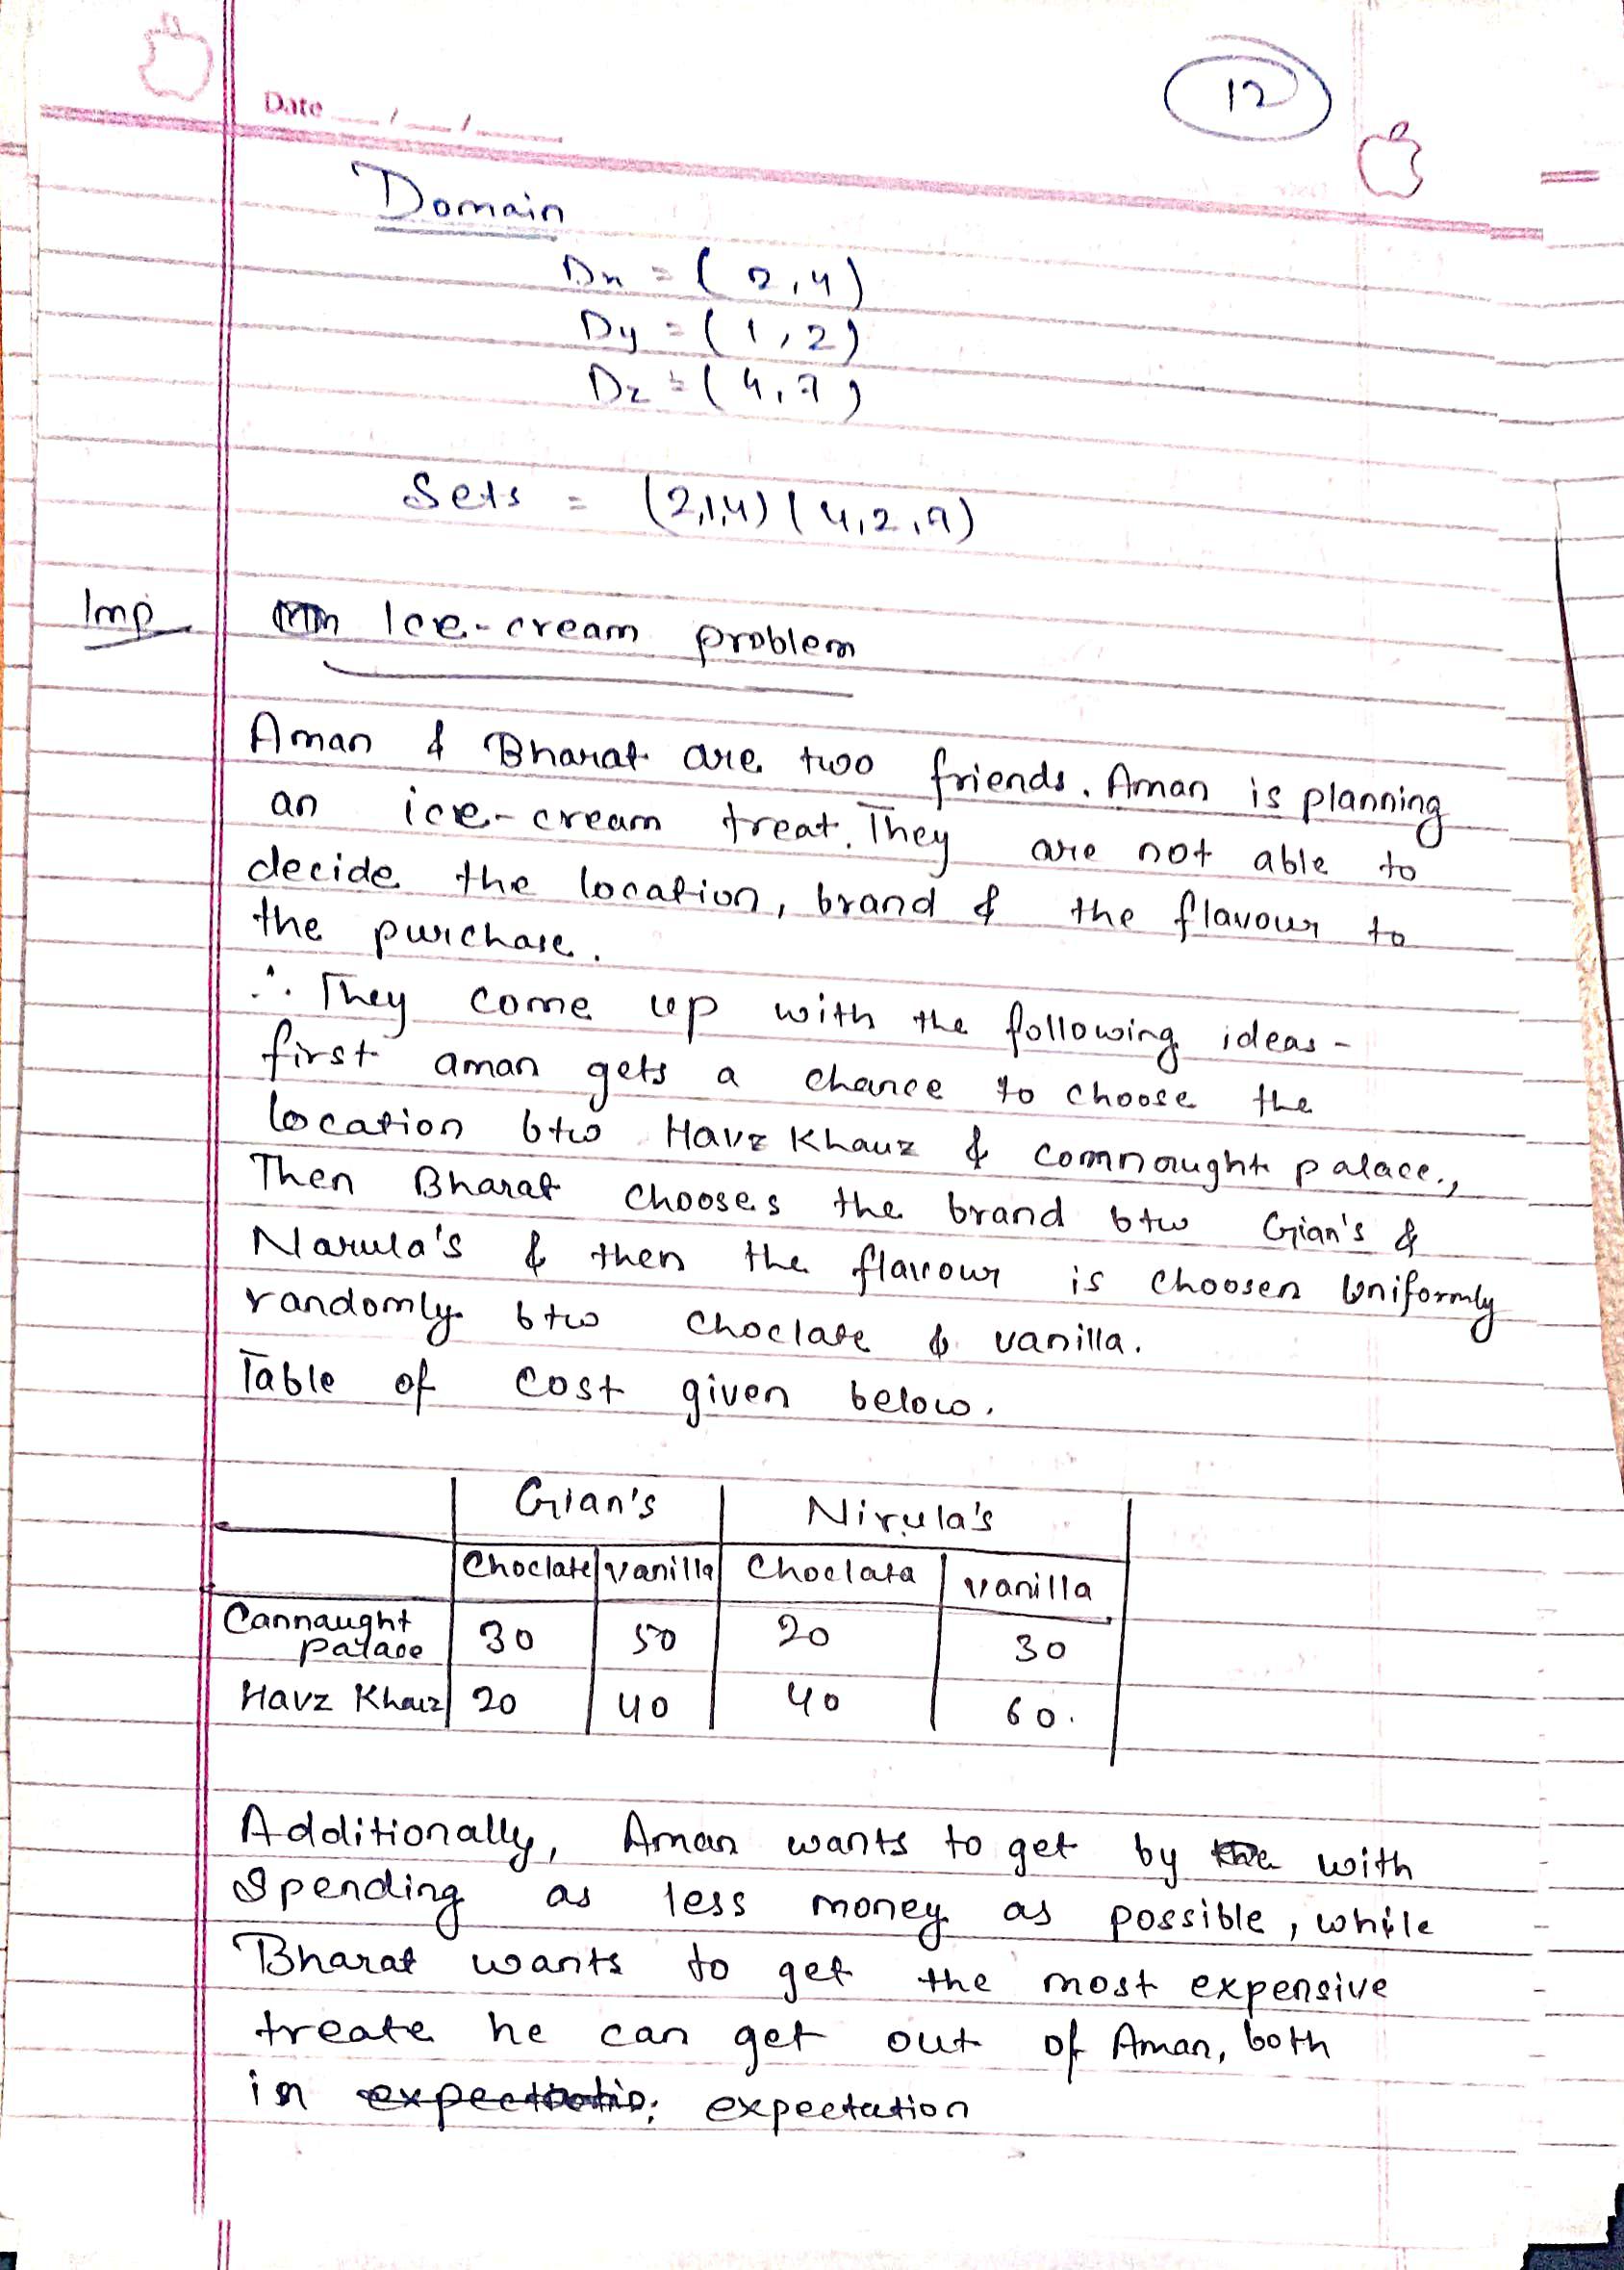 12
Date __/__/____
Domain
Dx = (2,4)
Dy = (1,2)
Dz = (4,7)
Sets = (2,1,4) (4,2,7)
Imp Ice-cream problem
Aman & Bharat are two friends. Aman is planning
an ice-cream treat. They are not able to
decide the location, brand & the flavour to
the purchase.
∴ They come up with the following ideas -
first aman gets a chance to choose the
location btw Havz Khauz & comnaught palace.,
Then Bharat chooses the brand btw Gian's &
Narula's & then the flavour is choosen Uniformly
randomly btw choclate & vanilla.
Table of cost given below.
Gian's Nirula's
Choclate Vanilla Choclate vanilla
Cannaught palace 30 50 20 30
Havz Khauz 20 40 40 60.
Additionally, Aman wants to get by the with
Spending as less money as possible, while
Bharat wants to get the most expensive
treate he can get out of Aman, both
in expectation